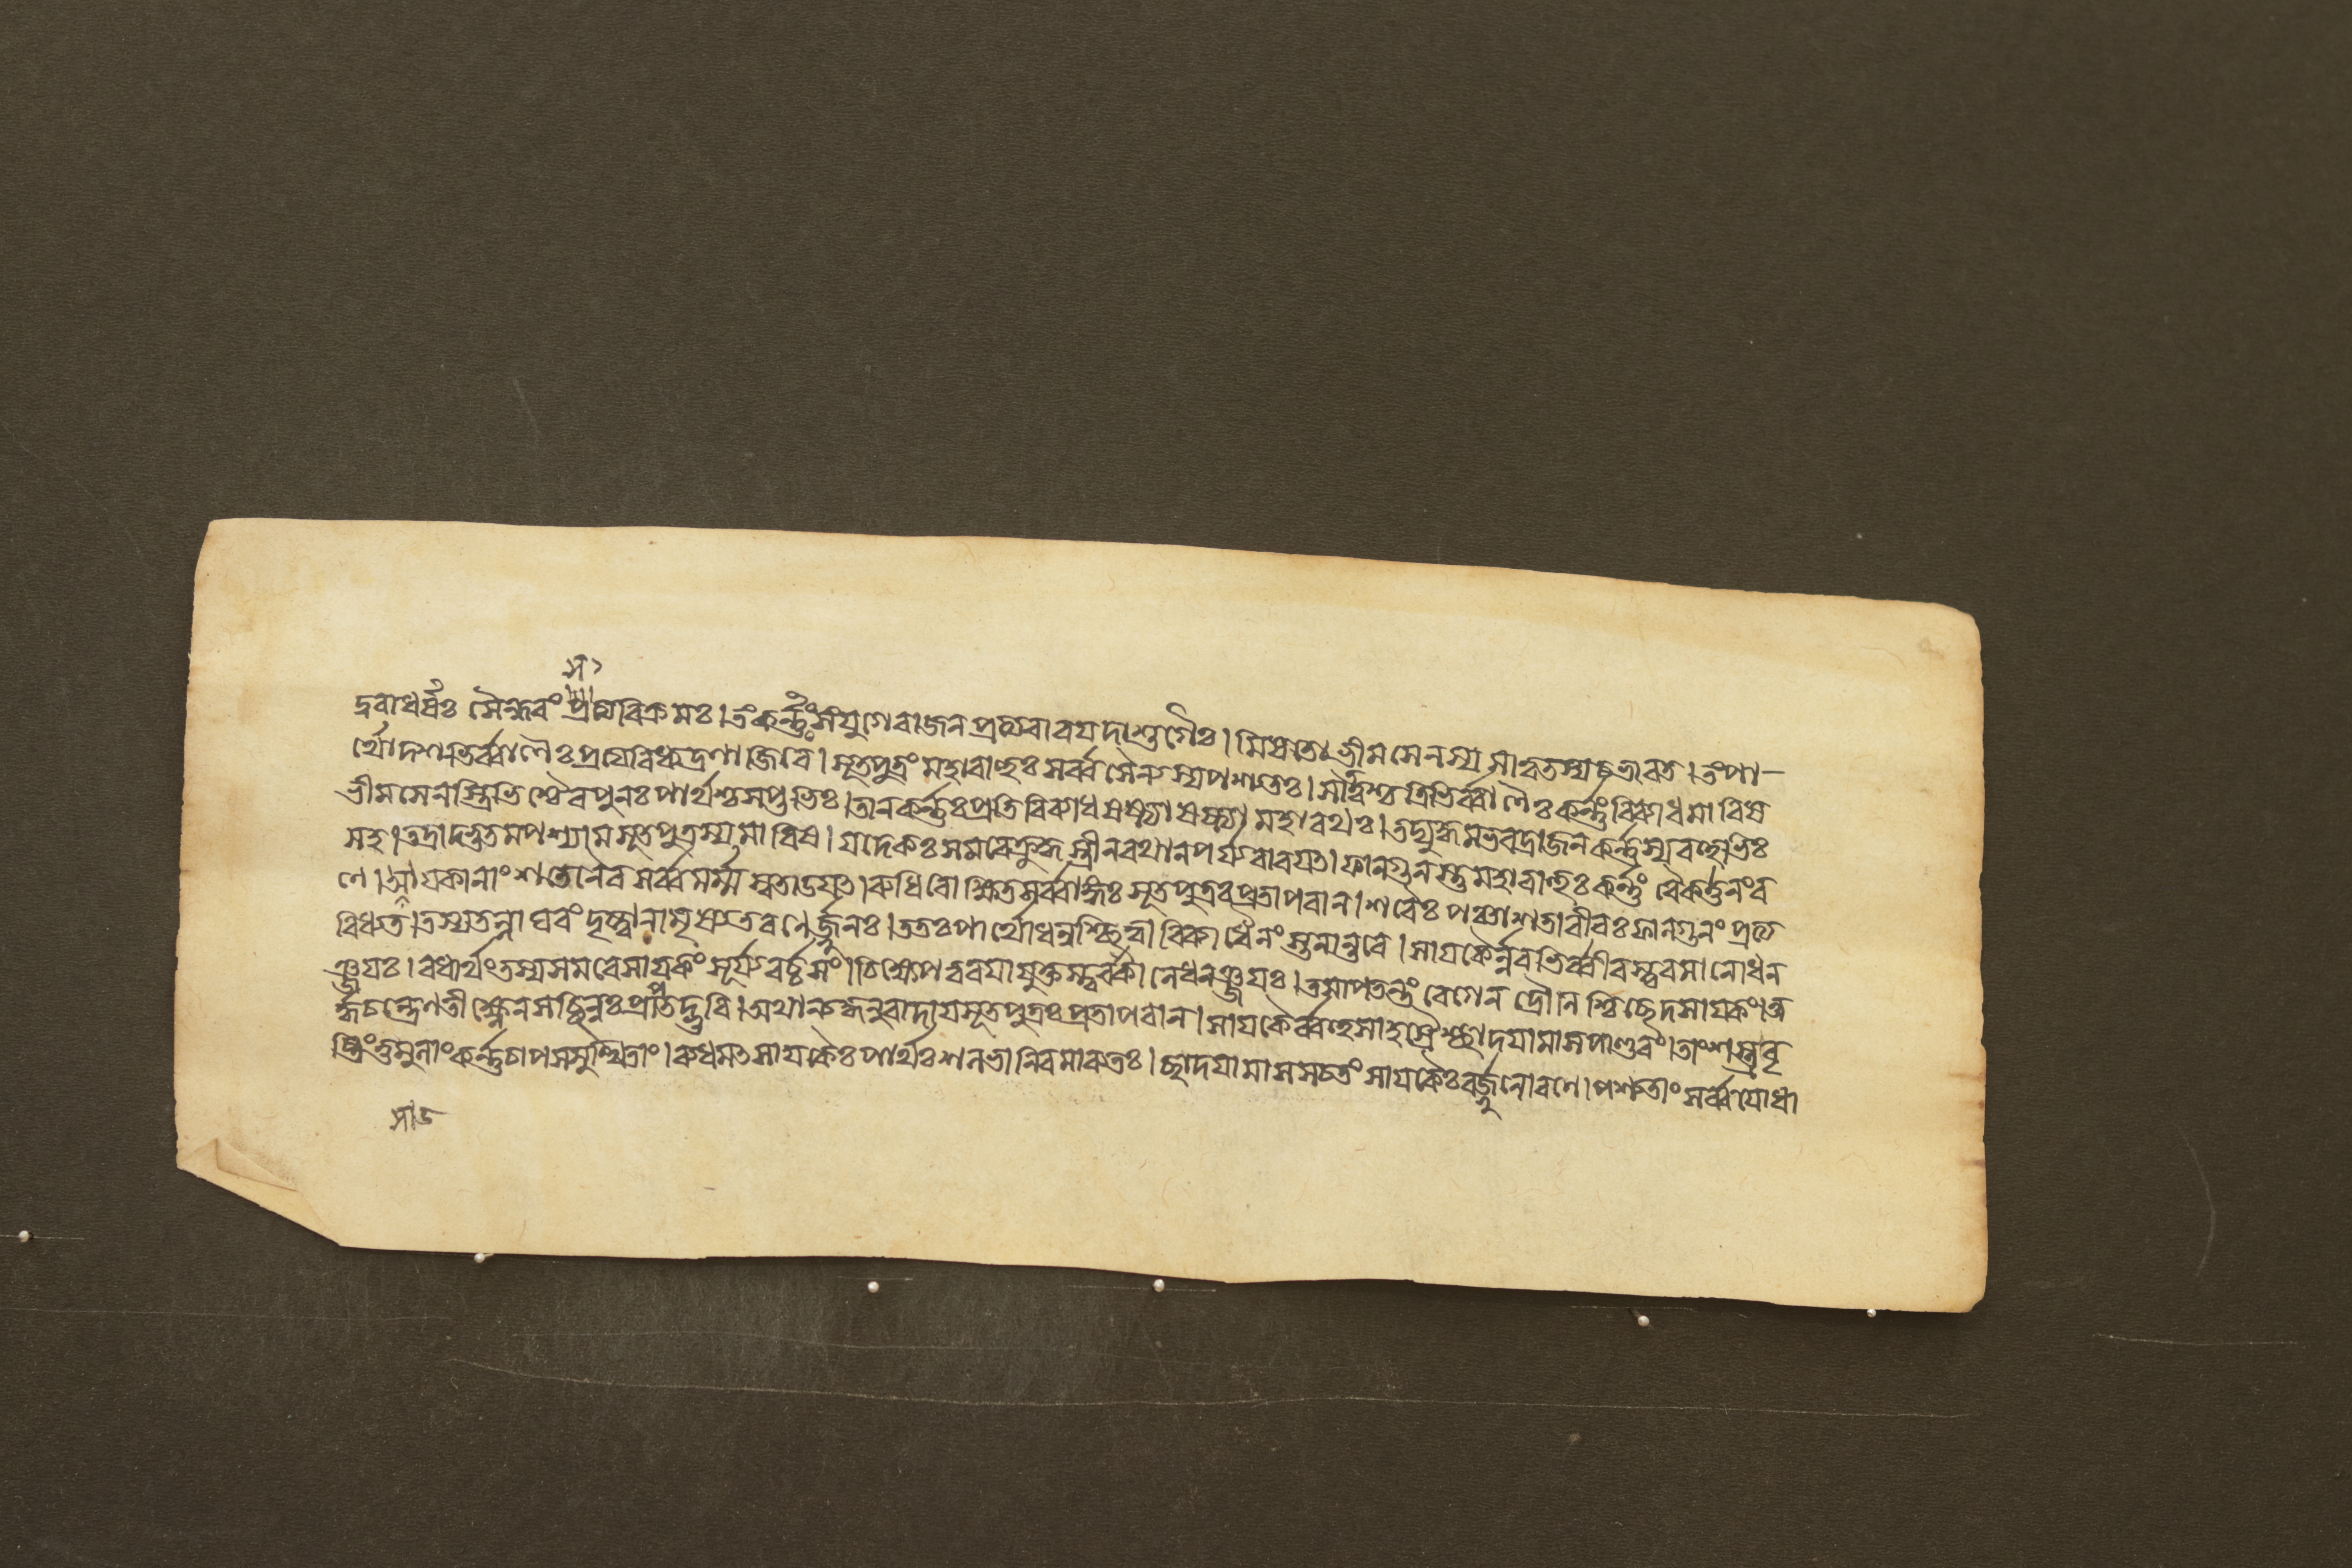 স১
দ্রবাধর্ষঃ সৈন্ধবং প্রত্যবিক্রমঃ। তং কর্ন্নঃ সংযুগে রাজন প্রত্যবারযদাশুগৈঃ। মিষতো ভীমসেনস্য সাত্বতস্য চ ভারত। তং পা-
র্থো দশভির্ব্বাণৈঃ প্রত্যবিধ্যদ্রণাজিরে। সূতপুত্রং মহাবাহুঃ সর্ব্বসৈন্যস্য পশ্যতঃ। সাত্বতশ্চ ত্রিভির্ব্বাণৈঃ কর্ন্নং বিব্যাধ মারিষ
ভীমসেনস্ত্রিভিশ্চৈব পুনঃ পার্থশ্চ সপ্তভিঃ। তান কর্ন্নঃ প্রতিবিব্যাধ ষষ্ট্যা ষষ্ট্যা মহারথঃ। তদ্যুদ্ধমভবদ্রাজন কর্ন্নস্য বহুভিঃ
সহ। তত্রাদ্ভুতমপশ্যাম সূতপুত্রস্য মারিষ। যদেকঃ সমরে ক্রুদ্ধস্ত্রীন রথান পর্য্যবারযত। ফালগুনস্তু মহাবাহুঃ কর্ন্নং বৈকর্ত্তনং র
ণে। সাযকানাং শতেনৈব সর্ব্বমর্ম্মস্বতাডযত। রুধিরোক্ষিতসর্ব্বাঙ্গঃ সূতপুত্রঃ প্রতাপবান। শরৈঃ পঞ্চাশতা বীরঃ ফালগুনং প্রত্য
বিধ্যত। তস্য তল্লাঘবং দৃষ্ট্বা নামৃষ্যত রণে র্জ্জুনঃ। ততঃ পার্থো ধনুশ্ছিত্বা বিব্যাধৈনং স্তনান্তরে। সাযকৈর্ন্নবভির্ব্বীরস্ত্বরমানো ধন
ঞ্জযঃ। বধার্থং তস্য সমরে সাযকং সূর্য্যবর্চ্চসং। চিক্ষেপ ত্বরযা যুক্তস্ত্বরাকালে ধনঞ্জযঃ। তমাপতন্তং বেগেন দ্রৌনিশ্চিচ্ছেদ সাযকং। অ
র্দ্ধচন্দ্রেণ তীক্ষ্ণেন সচ্ছিন্নঃ প্রাপতদ্ভুবি। অথান্যদ্ধনুরাদায সূতপুত্রঃ প্রতাপবান। সাযকৈর্ব্বহুসাহস্রৈশ্ছাদযামাস পাণ্ডবং। তাং শস্ত্রবৃ
ষ্টিং তুমুলাং কর্ন্নচাপসমুত্থিতাং। ব্যধমত সাযকৈঃ পার্থঃ শলভানিব মারুতঃ। ছাদযামাস স চ তং সাযকৈঃ রর্জ্জুনো রণে। পশ্যতাং সর্ব্বযোধা